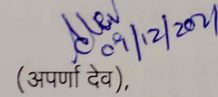 09/12/2021
(अपर्णा देव),